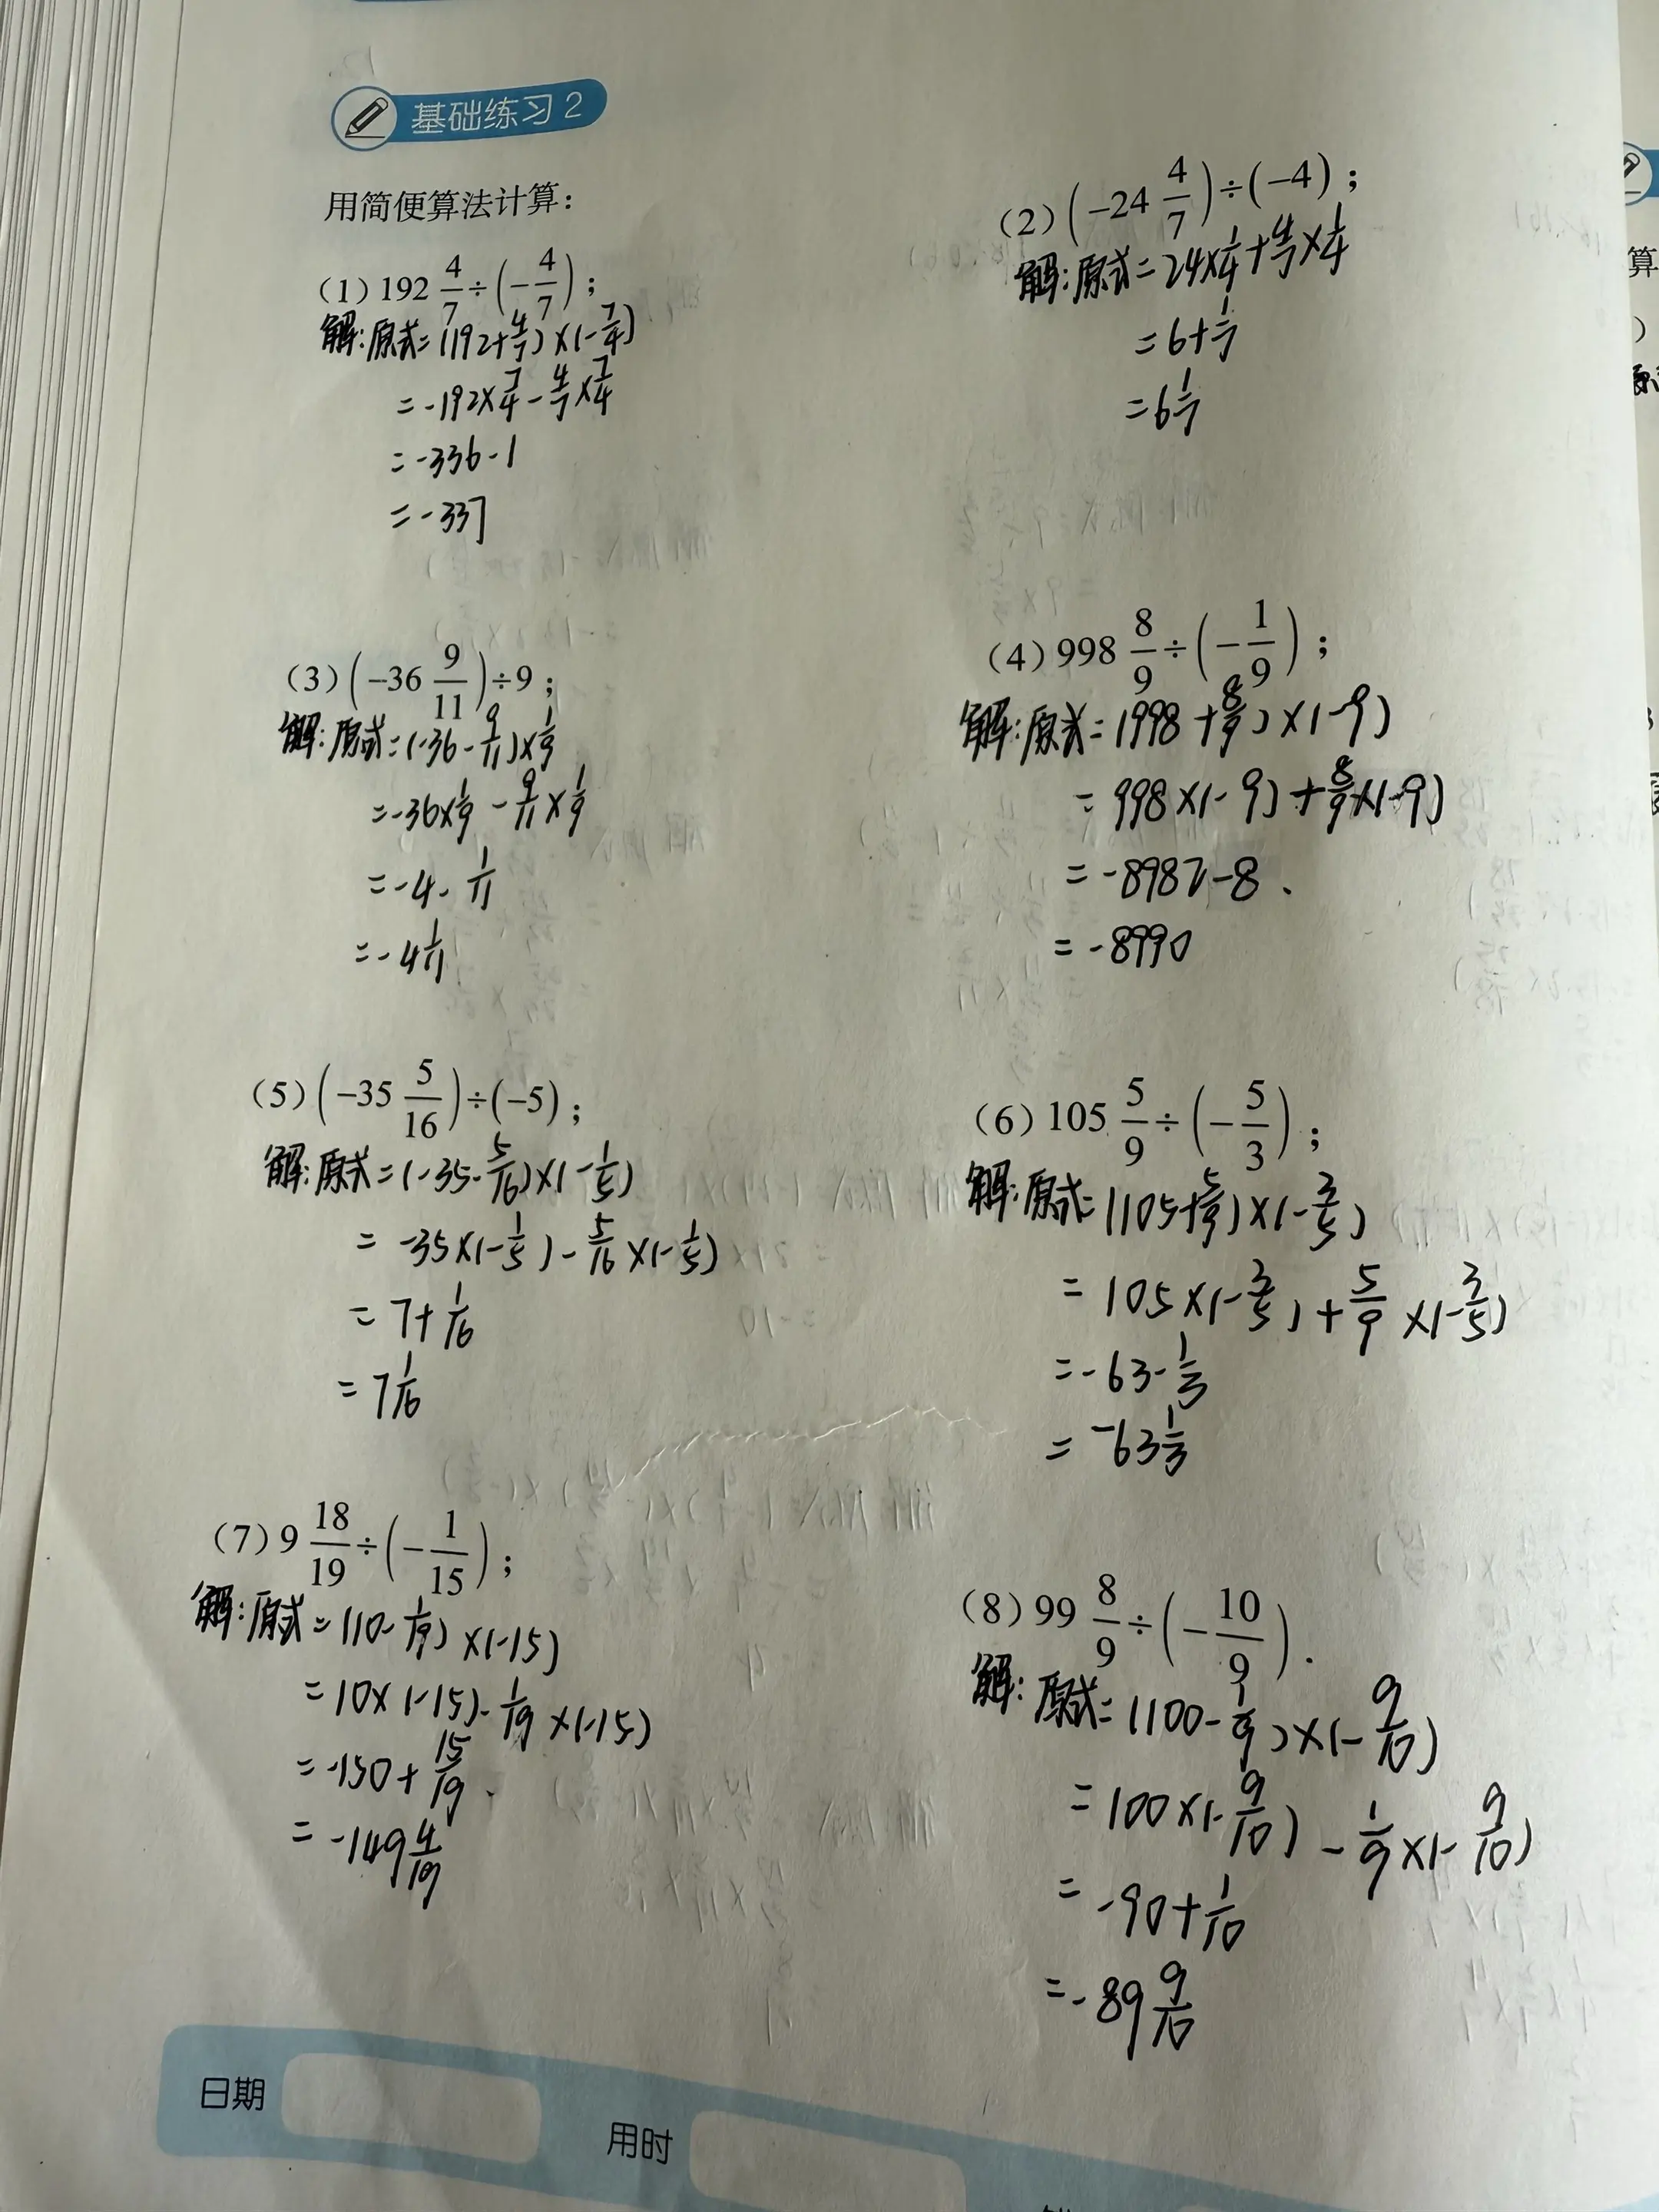 基础练习 2
用简便算法计算：
（1）192 4/7÷(-4/7)；
解:原式=(192+4/7)×(-7/4)
=-192×7/4-4/7×7/4
=-336-1
=-337
（2）(-24 4/7)÷(-4)；
解:原式=24×1/4+4/7×1/4
=6+1/7
=6 1/7
（3）(-36 9/11)÷9；
解:原式=(-36-9/11)×1/9
=-36×1/9-9/11×1/9
=-4-1/11
=-4 1/11
（4）998 8/9÷(-1/9)；
解:原式=(998+8/9)×(-9)
=998×(-9)+8/9×(-9)
=-8982-8
=-8990
（5）(-35 5/16)÷(-5)；
解:原式=(-35-5/16)×(-1/5)
=-35×(-1/5)-5/16×(-1/5)
=7+1/16
=7 1/16
（6）105 5/9÷(-5/3)；
解:原式=(105+5/9)×(-3/5)
=105×(-3/5)+5/9×(-3/5)
=-63-1/3
=-63 1/3
（7）9 18/19÷(-1/15)；
解:原式=(10-1/19)×(-15)
=10×(-15)-1/19×(-15)
=-150+15/19
=-149 4/19
（8）99 8/9÷(-10/9).
解:原式=(100-1/9)×(-9/10)
=100×(-9/10)-1/9×(-9/10)
=-90+1/10
=-89 9/10
日期
用时
算